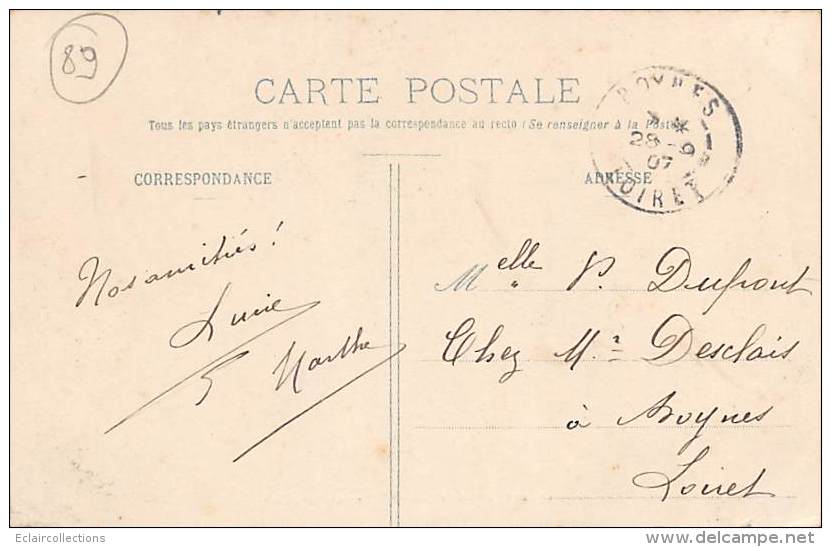 89
CARTE POSTALE
Tous les pays étrangers n'acceptent pas la correspondance au recto (Se renseigner à la Poste)
BOYNES
28 - 9
07
LOIRET
CORRESPONDANCE
ADRESSE
Nos amitiés !
Lucie
Marthe
Melle P. Dufront
Chez Mr Desclais
à Boynes
Loiret
Eclaircollections
www.delcampe.net